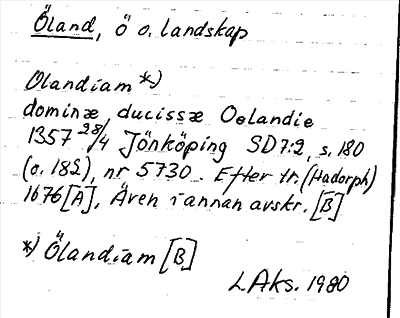 Öland, ö o. landskap
Olandiam *)
dominæ, ducissæ Oelandie
1357 28/4 Jönköping SD7:2, s. 180
(o. 182), nr 5730. Efter tr. (Hadorph)
1676 [A], Även i annan avskr. [B]
*) Ölandiam [B]
LAks. 1980